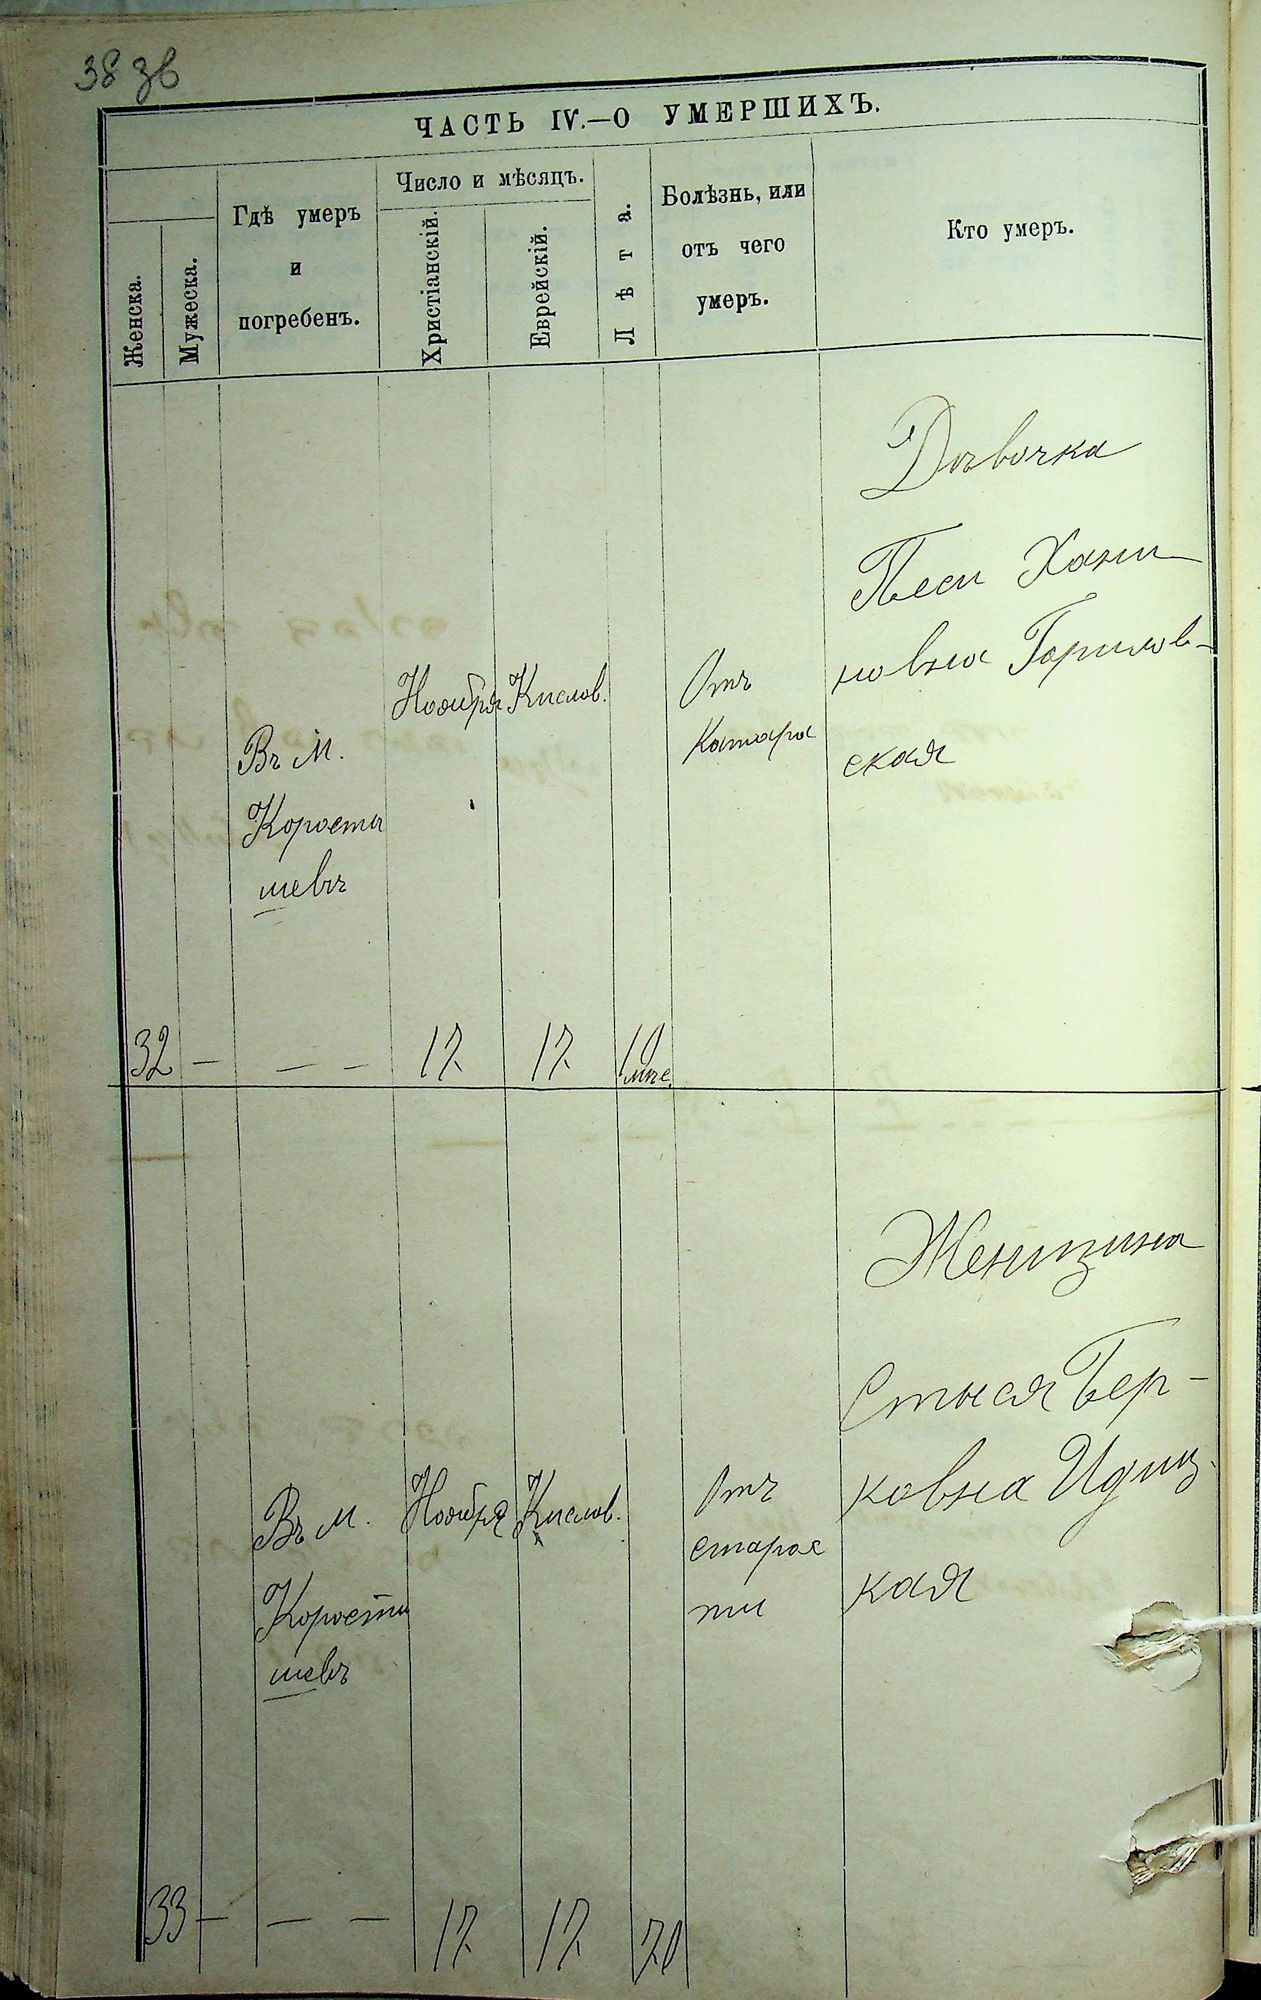 38 зв
ЧАСТЬ IV.—О УМЕРШИХЪ.
Женска.
Мужеска.
Гдѣ умеръ
и
погребенъ.
Число и мѣсяцъ.
Христіанскій.
Еврейскій.
Лѣта.
Болѣзнь, или
отъ чего
умеръ.
Кто умеръ.
32 —
Въ М.
Корости
шевъ
— — —
Ноября
17.
Кислов.
17.
10
мѣс.
Отъ
Катара
Дѣвочка
Песи Хаим
новна
ская
33 —
Въ М.
Корости
шевъ
— —
Ноября
17.
Кислов.
17.
70
Отъ
старос
ти
Женщина
Бер-
ковна
кая